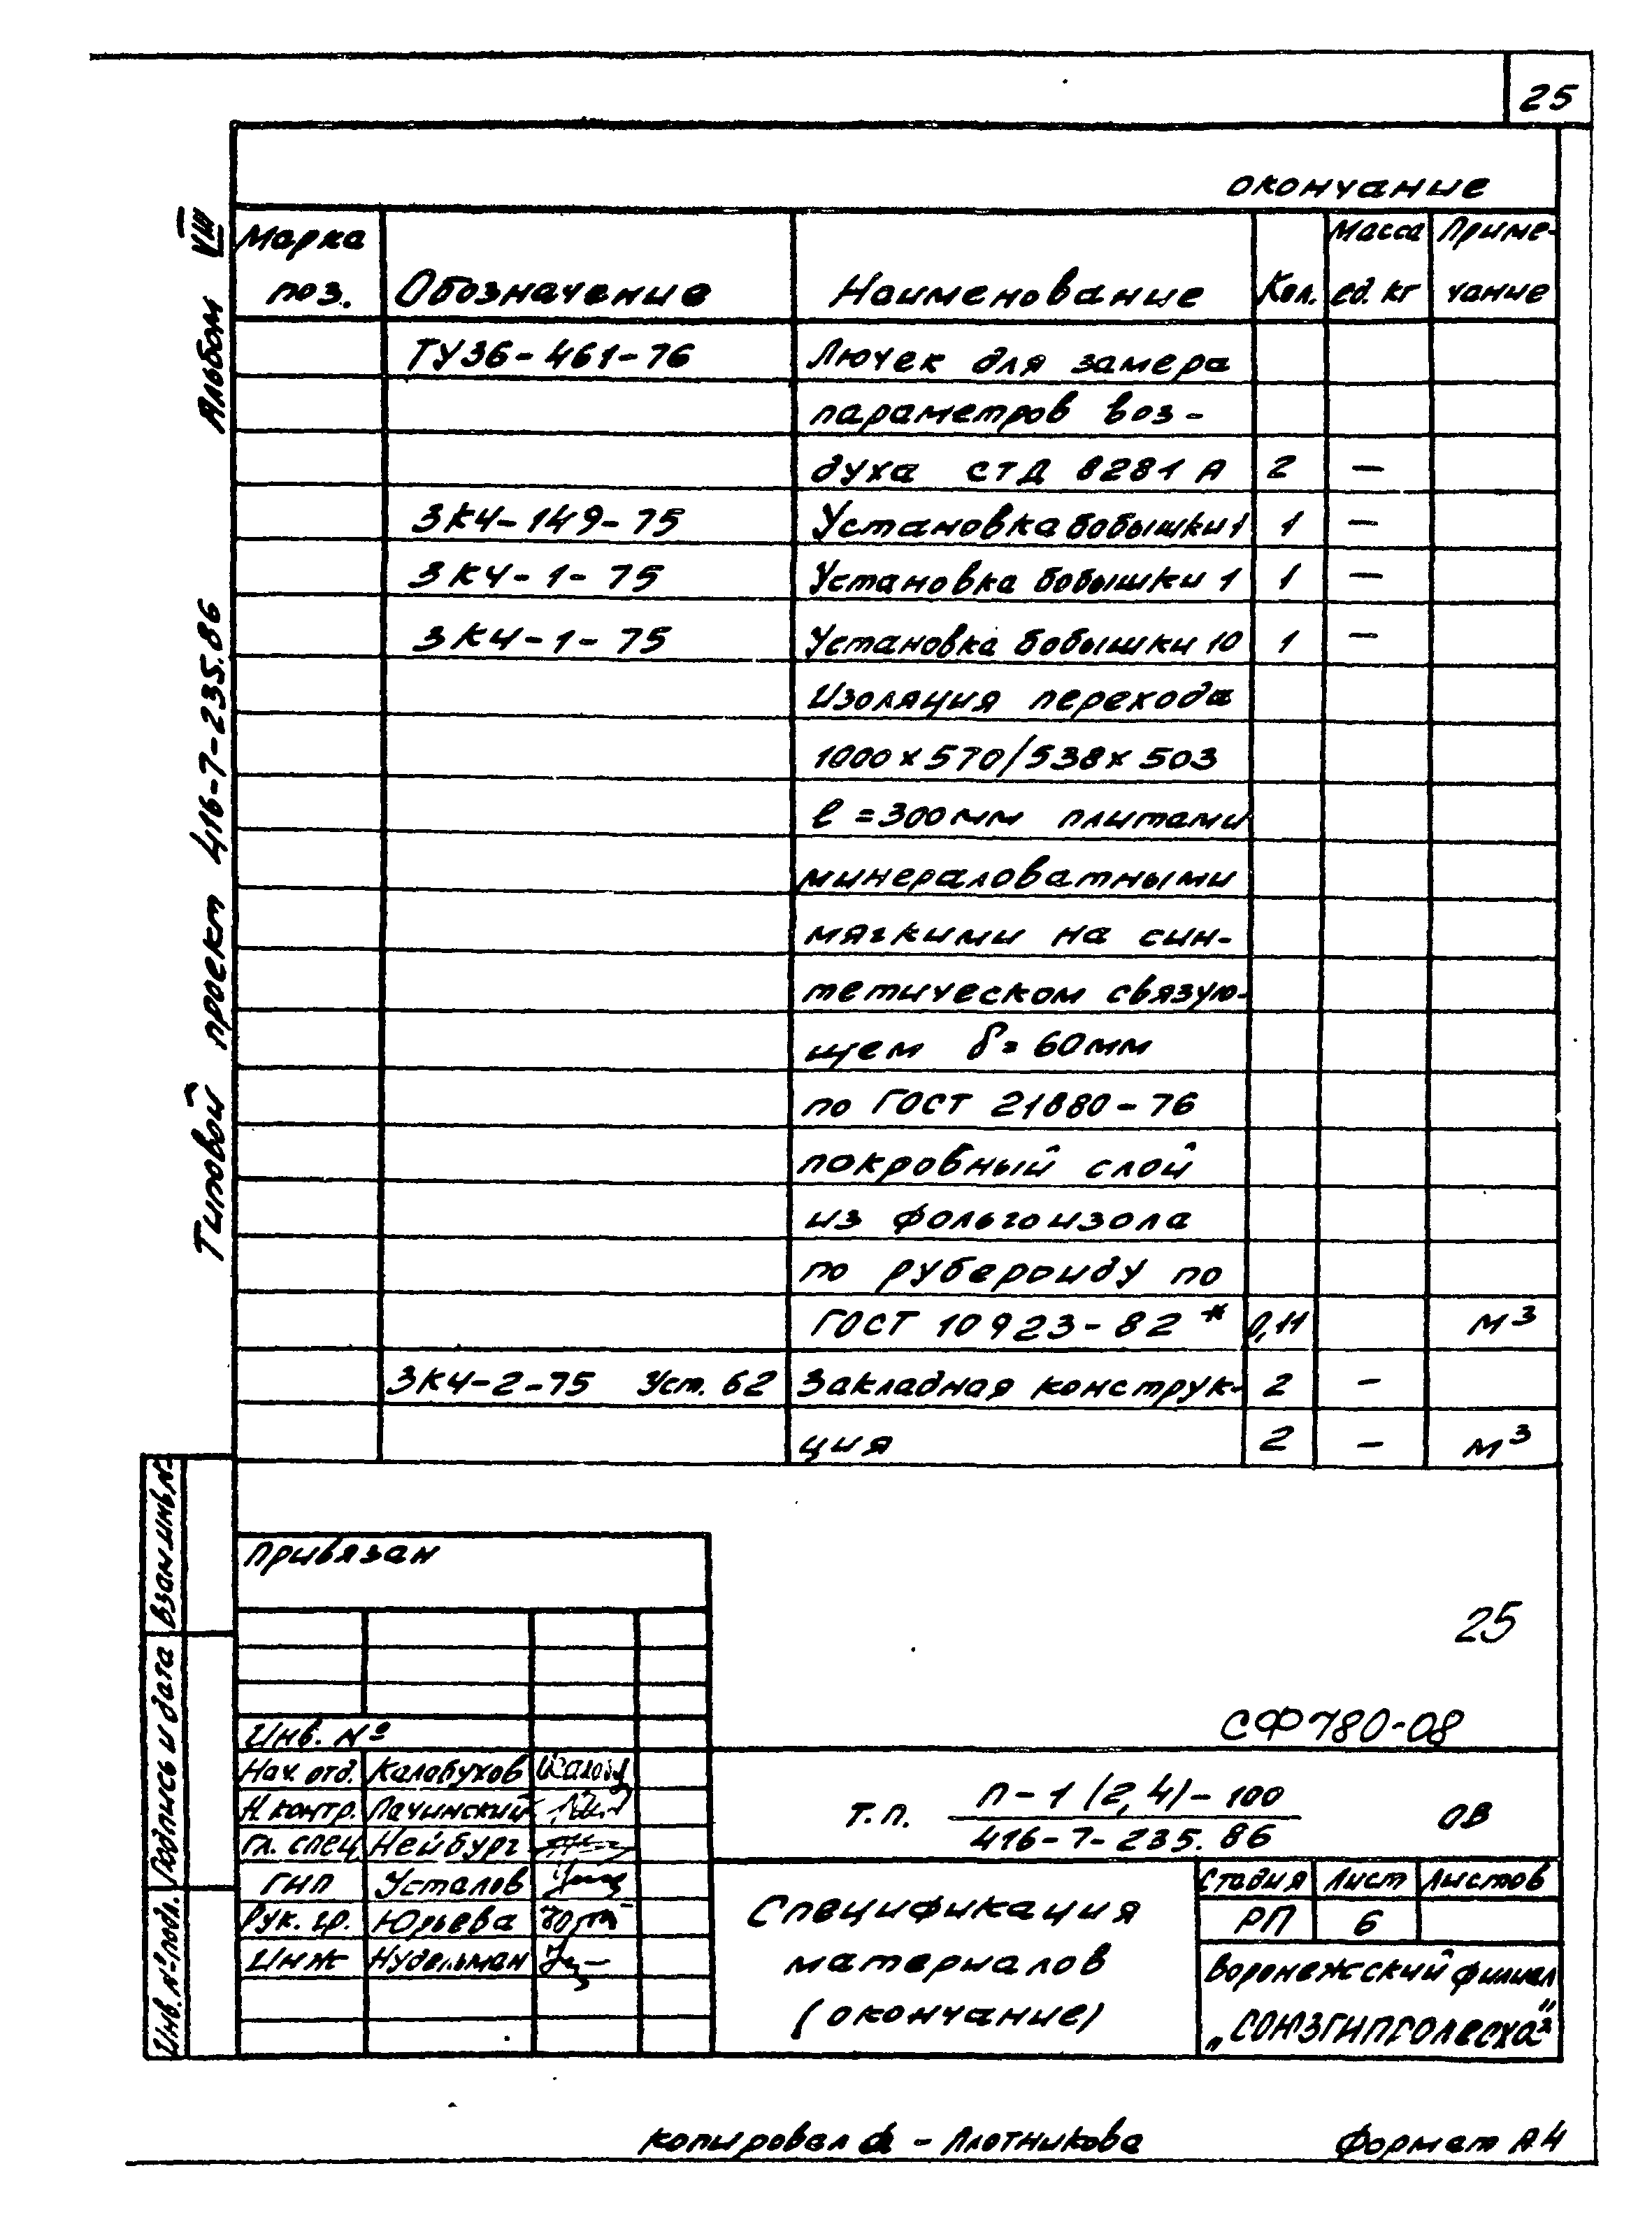 25
окончание
Марка поз. Обозначение Наименование Кол. Масса ед. кг Приме-чание
ТУ36-461-76 Лючек для замера
параметров воз-
духа СТД 8281 А 2 —
ЗК4-149-75 Установка бобышки 1 1 —
ЗК4-1-75 Установка бобышки 1 1 —
ЗК4-1-75 Установка бобышки 10 1 —
Изоляция перехода
1000 х 570/538 х 503
ℓ = 300 мм плитами
минераловатными
мягкими на син-
тетическом связую-
щем δ = 60 мм
по ГОСТ 21880-76
покровный слой
из фольгоизола
по рубероиду по
ГОСТ 10923-82 * 0,11 м³
ЗК4-2-75 Уст. 62 Закладная конструк- 2 —
ция 2 — м³
Альбом VIII
Типовой проект 416-7-235.86
Взам.инв.№
Подпись и дата
Инв. № подл.
Привязан
Инв. №
25
СФ 780-08
Нач. отд. Калабухов
Н контр. Лачинский
Гл. спец Нейбург
ГИП Усталов
Рук. гр. Юрьева
Инж Нудельман
Т.П. П-1 (2,4)-100
416-7-235.86
ОВ
Спецификация
материалов
(окончание)
Стадия Лист Листов
РП 6
Воронежский филиал
„СОЮЗГИПРОЛЕСХОЗ"
Копировал - Плотникова
Формат А4